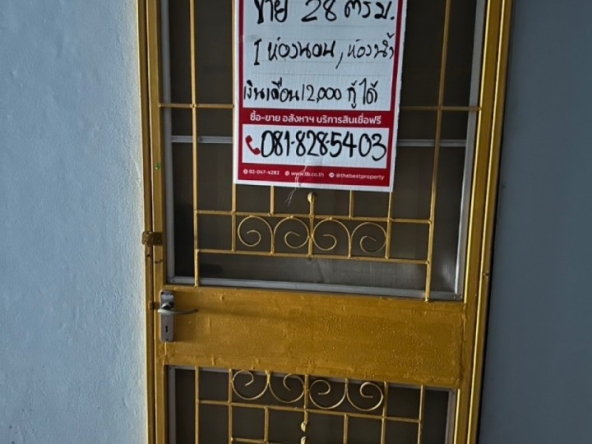 ขาย 28 ตรม.
1 ห้องนอน, ห้องน้ำ
เงินเดือน 12,000 กู้ได้
ซื้อ-ขาย อสังหาฯ บริการสินเชื่อฟรี
081-828-5403
02-047-4282 www.tb.co.th @thebestproperty